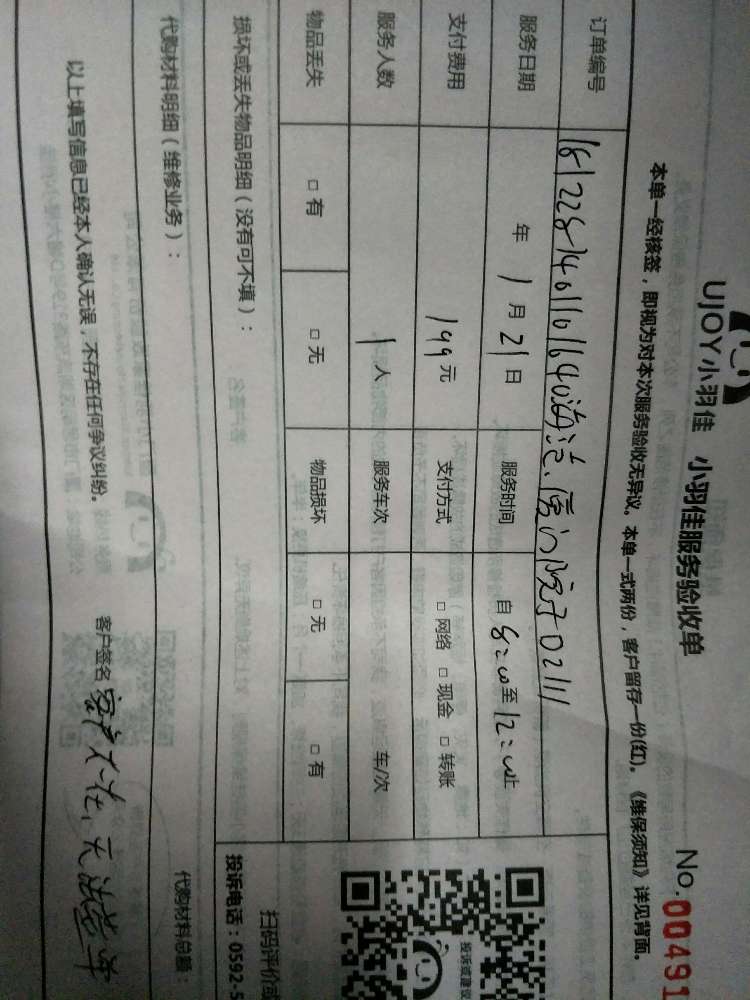 UJOY小羽佳 小羽佳服务验收单
No.00491
本单一经核签，即视为对本次服务验收无异议。本单一式两份，客户留存一份(红)。《维保须知》详见背面。
订单编号
服务日期 年 1月21日 服务时间 自8:00至12:00止
支付费用 199元 支付方式 □网络 □现金 □转账
服务人数 1人 服务车次 车/次
物品丢失 □有 □无 物品损坏 □无 □有
投诉或建议
扫码评价或
投诉电话：0592-5
损坏或丢失物品明细（没有可不填）：
代购材料明细（维修业务）： 代购材料总额：
以上填写信息已经本人确认无误，不存在任何争议纠纷。 客户签名 客户不在,无法签单